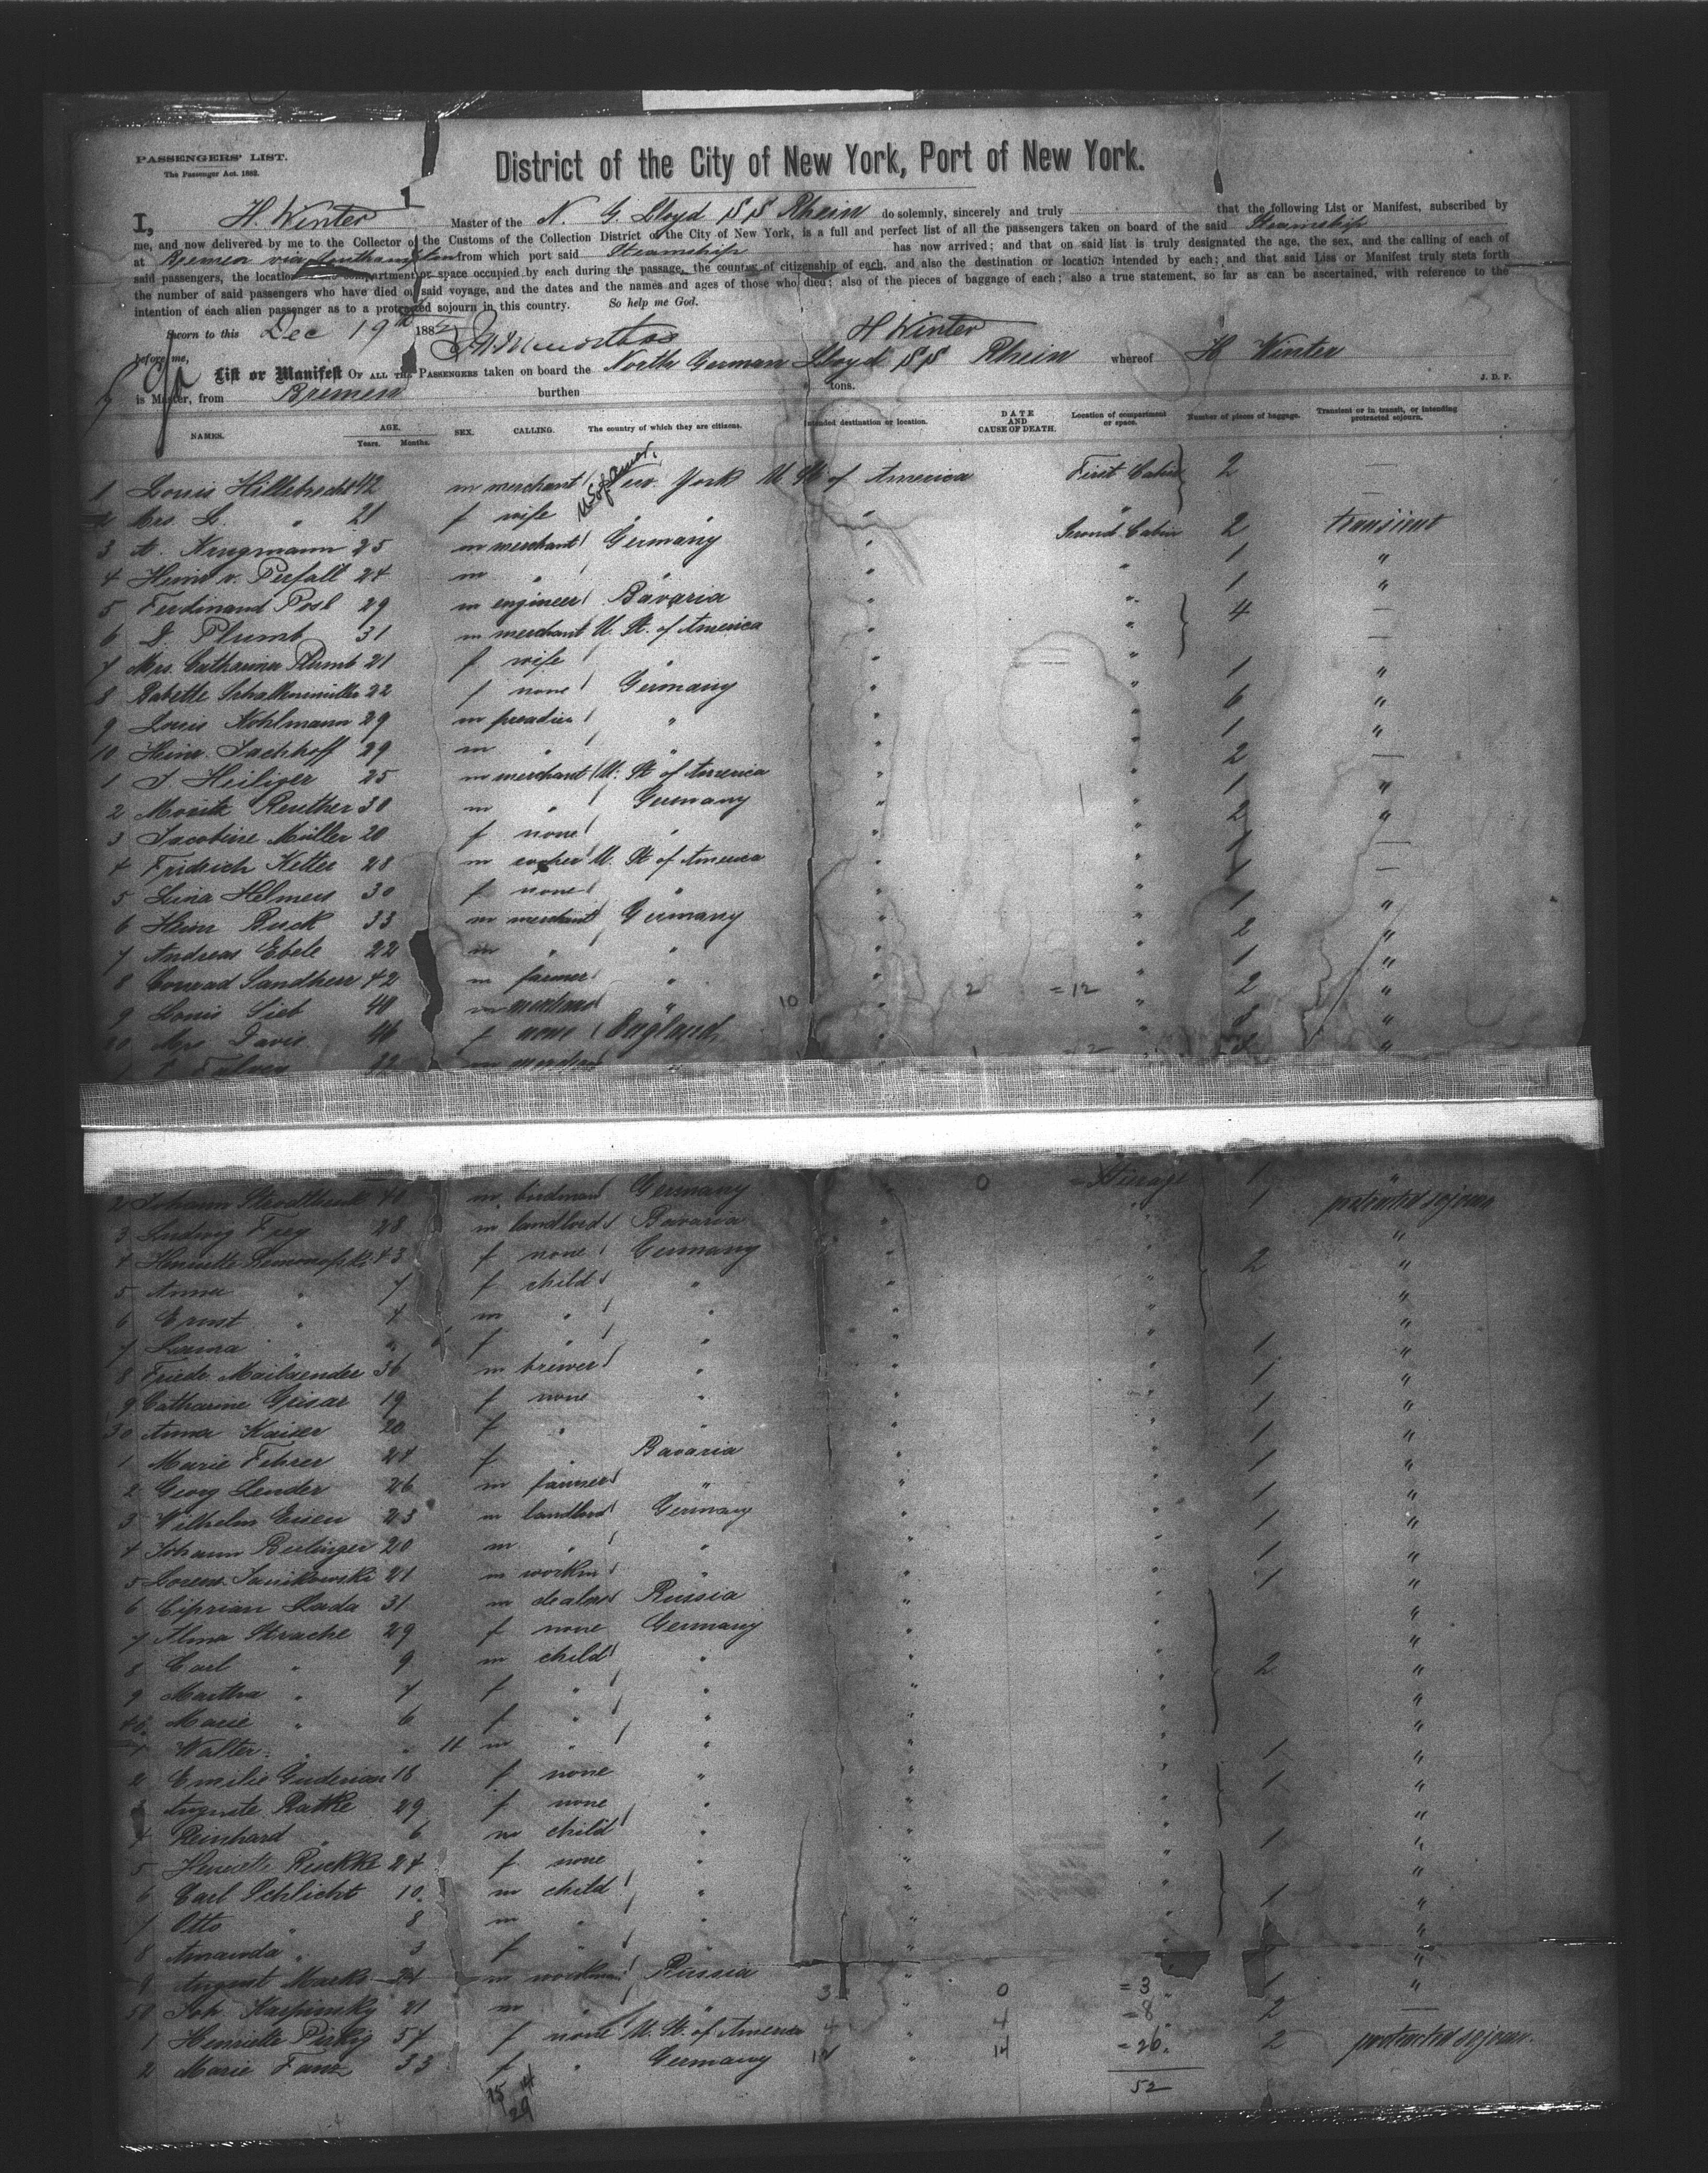 PASSENGERS' LIST.
The Passenger Act. 1882.
District of the City of New York, Port of New York.
I, H. Winter Master of the N. G. Lloyd SS Rhein do solemnly, sincerely and truly that the following List or Manifest, subscribed by
me, and now delivered by me to the Collector of the Customs of the Collection District of the City of New York, is a full and perfect list of all the passengers taken on board of the said Steamship
at Bremen via Southampton from which port said Steamship has now arrived; and that on said list is truly designated the age, the sex, and the calling of each of
said passengers, the location compartment or space occupied by each during the passage, the country of citizenship of each, and also the destination or location intended by each; and that said List or Manifest truly stets forth
the number of said passengers who have died on said voyage, and the dates and the names and ages of those who died; also of the pieces of baggage of each; also a true statement, so far as can be ascertained, with reference to the
intention of each alien passenger as to a protracted sojourn in this country. So help me God.
Sworn to this Dec 19th 188
H Winter
before me,
List or Manifest OF ALL THE PASSENGERS taken on board the North German Lloyd SS Rhein whereof H Winter
is Master, from Bremen burthen tons.
J. D. P.
NAMES. AGE. Years. Months. SEX. CALLING. The country of which they are citizens. Intended destination or location. DATE AND CAUSE OF DEATH. Location of compartment or space. Number of pieces of baggage. Transient or in transit, or intending protracted sojourn.
1 Louis Hillebrecht 42 m merchant New York U. St. of America First Cabin 2 —
2 Mrs. L. " 21 f wife " " " "
3 A. Krugmann 25 m merchant Germany " Second Cabin 2 transient
4 Heinr v. Perfall 24 m " " " " 1 "
5 Ferdinand Posl 29 m engineer Bavaria " " 1 "
6 D. Plumb 31 m merchant U. St. of America " " 4 —
7 Mrs. Catharina Plumb 21 f wife " " " —
8 Babette Schalkenmüller 22 f none Germany " " 1 "
9 Louis Kohlmann 29 m " " " 6 "
10 Heinr. Jachhoff 29 m " " " " 1 "
1 J. Heiliger 25 m merchant U. St of America " " 2 —
2 Moritz Reuther 30 m " Germany " " 1 "
3 Jacobine Müller 20 f none " " " 2 "
4 Fridrich Ketter 28 m U. St of America " " 1 —
5 Lina Helmers 30 f none " " " 1 —
6 Heinr Buck 33 m merchant Germany " " 1 "
7 Andreas Ebele 22 m " " " " 2 "
8 Conrad Sandherr 42 m farmer " " " 1 "
9 Louis Sieb 40 m merchant " 10 " 2 =12 " 2 "
20 Mrs. Davis 46 f none England " " "
1 m merchant " 1 =2 "
2 Johann m Germany 0 =Steerage 1 protracted sojourn
3 Ludwig Frey 28 m landlord Bavaria " " 1 "
4 Henriette 43 f none Germany " " 2 "
5 Anna " 7 f child " " " "
6 Ernst " 4 m " " " " "
7 Laura " f " " " " "
8 Friedr. Mailaender 36 m brewer " " " 1 "
9 Catharine Grisar 19 f none " " " 1 "
30 Anna Kaiser 20 f " " " " 1 "
1 Marie Fehrer 24 f " Bavaria " " 1 "
2 Georg Lender 26 m farmer " " " 1 "
3 Wilhelm Eisen 23 m landlord Germany " " 1 "
4 Johann Beilinger 20 m " " " " 1 "
5 Lorenz Janikowski 21 m workm " " " 1 "
6 Ciprian Lada 31 m dealer Russia " " 1 "
7 Alma Strache 29 f none Germany " " "
8 Carl " 9 m child " " " 2 "
9 Martha " 7 f " " " " "
40 Marie " 6 f " " " " "
1 Walter " " 11 m " " " " "
2 Emilie Guderian 18 f none " " " 1 "
3 Auguste Ratke 29 f none " " " 1 "
4 Reinhard " 6 m child " " " "
5 Henriette Reschke 24 f none " " " 1 "
6 Carl Schlicht 10 m child " " " "
7 Otto " 8 m " " " " 1 "
8 Amanda " 3 f " " " " "
9 August Marks 24 m workman Russia " " "
50 Joh. Karpinsky 21 m " " 3 " 0 =3 " 1 "
1 Henriette 54 f none U. St. of America 4 " 4 =8 " 2 —
2 Marie Fanz 33 f " Germany 12 " 14 =26 " 2 protracted sojourn.
52
15 14
29